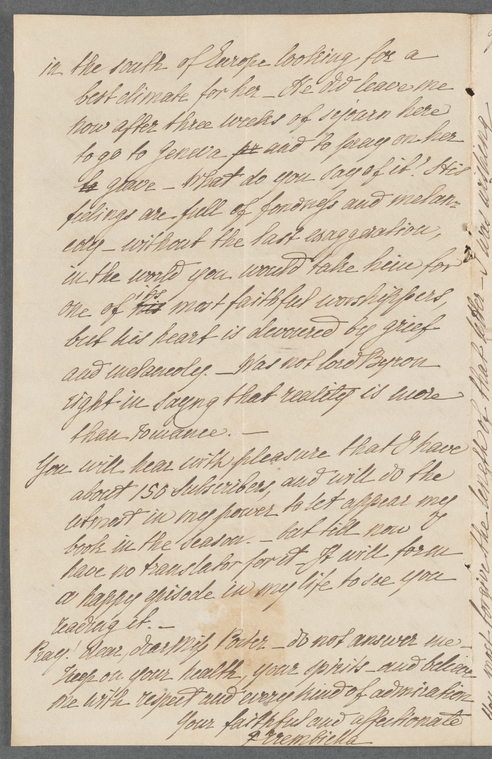 in the south of Europe looking for a
best climate for her – He did leave me
now after three weeks of sejourn here
to go to Geneva and to pray on her
grave – What do you say of it! His
feelings are full of fondness and melan=
coly – without the last exaggeration,
in the world you would take him for
one of its most faithful worshippers,
but his heart is devoured by grief
and melancoly. – Was not lord Byron
right in sayng that reality is more
than romance. –
You will hear with pleasure that I have
about 150 Subscribers, and will do the
utmost in my power to let appear my
book in the season. – but till now I
have no translator for it. It will form
a happy episode in my life to see you
reading it. –
Pray! dear, dear Miss Porter – do not answer me –
Keep on your health, your spirits – and believe
me with respect and every kind of admiration
Your faithful and affectionate
you most forgive the length of that letter – I was writing